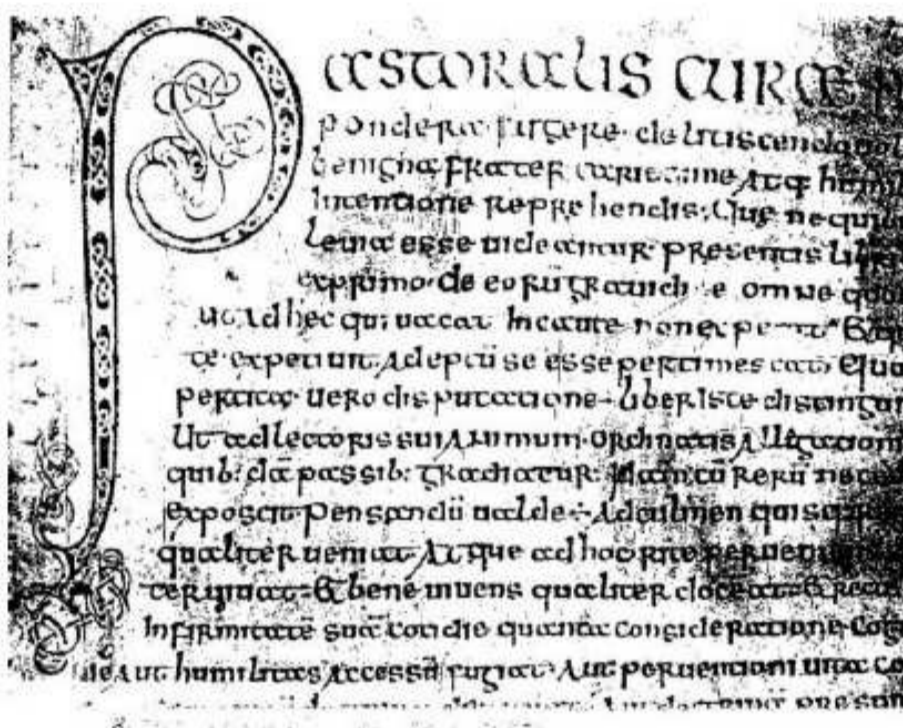 PASTORALIS CURAE
pondera fugere delitiscendo
benigna frater carissime atq; humil
intentione reprehendis. Que ne qui
leuia esse uideantur. presentis libri
exprimo. de eorū grauidi e omne quo
ut. Ad hec qui uacat incaute non expe
te expetiunt. Adeptū se esse pertimescat. E quo
pertita. uero disputatione. liber iste distingui
ut ad lectoris sui animum. ordinatis alligation
quib: dā passib: gradiatur. Nā cū rerū nece
exposcit. pensandū ualde ÷ Ad culmen quisq
qualiter ueniat. At que ad hoc rite peruen
&bene uiuens qualiter doceat. & rec
infirmitatē suā cotidie quanta consideratione cog
ne Aut humilitas accessū fugiat. Aut peruentioni uita co